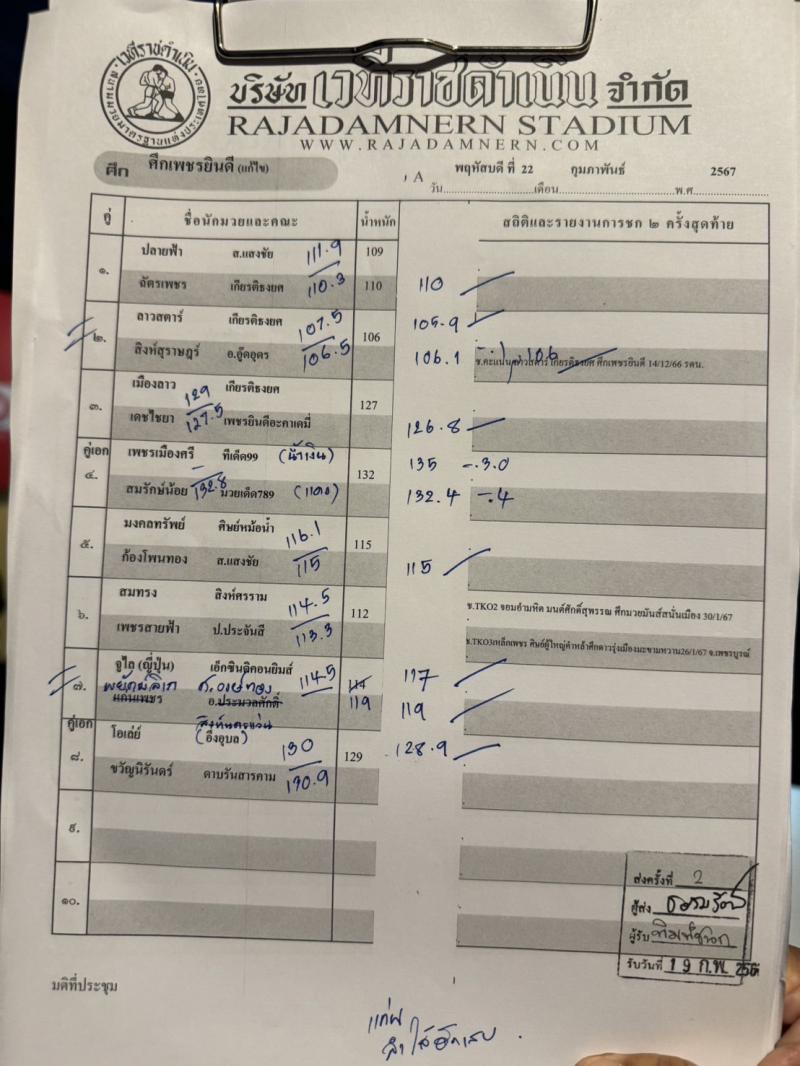 เวทีราชดำเนิน
บริษัท เวทีราชดำเนิน จำกัด
RAJADAMNERN STADIUM
WWW.RAJADAMNERN.COM
ศึก ศึกเพชรยินดี (แก้ไข) , A พฤหัสบดี ที่ 22 กุมภาพันธ์ 2567
วัน เดือน พ.ศ
คู่ ชื่อนักมวยและคณะ น้ำหนัก สถิติและรายงานการชก ๒ ครั้งสุดท้าย
ปลายฟ้า ส.แสงชัย 111.9 109
๑. ฉัตรเพชร เกียรติธงยศ 110.3 110 110
ลาวสตาร์ เกียรติธงยศ 107.5 105.9
๒. สิงห์สุราษฎร์ อ.อู๊ดอุดร 106.5 106 106.1 106 ช.คะแนน ลาวสตาร์ เกียรติธงยศ ศึกเพชรยินดี 14/12/66 รดน.
เมืองลาว เกียรติธงยศ 129
๓. เดชไชยา 127.5 เพชรยินดีอะคาเดมี่ 127 126.8
คู่เอก เพชรเมืองศรี ทีเด็ด99 (น้ำเงิน) 135 -.3.0
๔. สมรักษ์น้อย 132.8 มวยเด็ด789 (แดง) 132 132.4 -.4
มงคลทรัพย์ ศิษย์หม้อน้ำ 116.1
๕. ก้องโพนทอง ส.แสงชัย 115 115 115
สมทรง สิงห์ศรราม 114.5 ช.TKO2 จอมอำมหิต มนต์ศักดิ์สุพรรณ ศึกมวยมันส์สนั่นเมือง 30/1/67
๖. เพชรสายฟ้า ป.ประจันสี 113.3 112 ช.TKO3เหล็กเพชร ศิษย์ผู้ใหญ่คำหล้าศึกดาวรุ่งเมืองมะขามหวาน26/1/67 จ.เพชรบูรณ์
จูไล (ญี่ปุ่น) เอ็กซินดิคอนยิมส์ 114.5 117
๗. แก่นเพชร อ.ประมวลศักดิ์ 119 119
คู่เอก โอเล่ย์ (อึ่งอุบล) 130 128.9
๘. ขวัญนิรันดร์ ดาบรันสารคาม 130.9 129
๙.
๑๐.
ส่งครั้งที่ 2
ผู้ส่ง
ผู้รับ
รับวันที่ 19 ก.พ. 2567
มติที่ประชุม